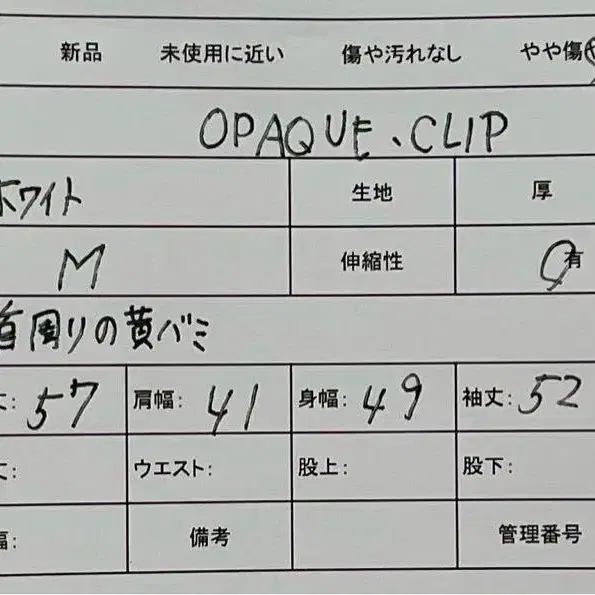 新品 未使用に近い 傷や汚れなし やや傷や
OPAQUE.CLIP
ホワイト 生地 厚
M 伸縮性 有
首周りの黄バミ
丈: 57 肩幅: 41 身幅: 49 袖丈: 52
丈: ウエスト: 股上: 股下:
幅: 備考 管理番号